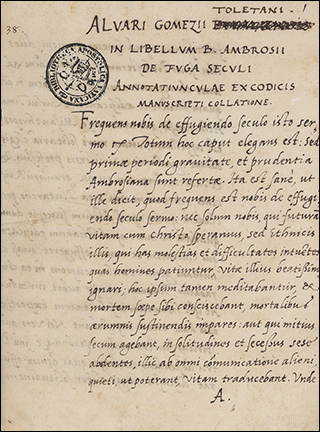 TOLETANI.
38
ALVARI GOMEZII
IN LIBELLVM B. AMBROSII
DE FVGA SECVLI
ANNOTATIVNCVLAE EX CODICIS
MANVSCRIPTI COLLATIONE.
Frequens nobis de effugiendo seculo isto ser
mo &c. Totum hoc caput elegans est: Sed
primae periodi grauitate, et prudentia
Ambrosiana sunt refertae. Ita est sane, ut
ille dicit, quod frequens est nobis de effugi
endo seculo sermo: nec solum nobis, qui futurã
vitam cum Christo speramus, sed Ethnicis
illis, qui has molestias et difficultates intuitos
quas homines patiuntur, vitae illius beatissimae
ignari, hoc ipsum tamen meditabantur, &
mortem saepe sibi consciscebant, mortalibus
aerumnis sustinendis impares: aut qui mitius
secum agebant, in solitudines et secessus sese
abdentes, illic ab omni comunicatione alieni
quieti, ut poterant, vitam traducebant. Unde
A.